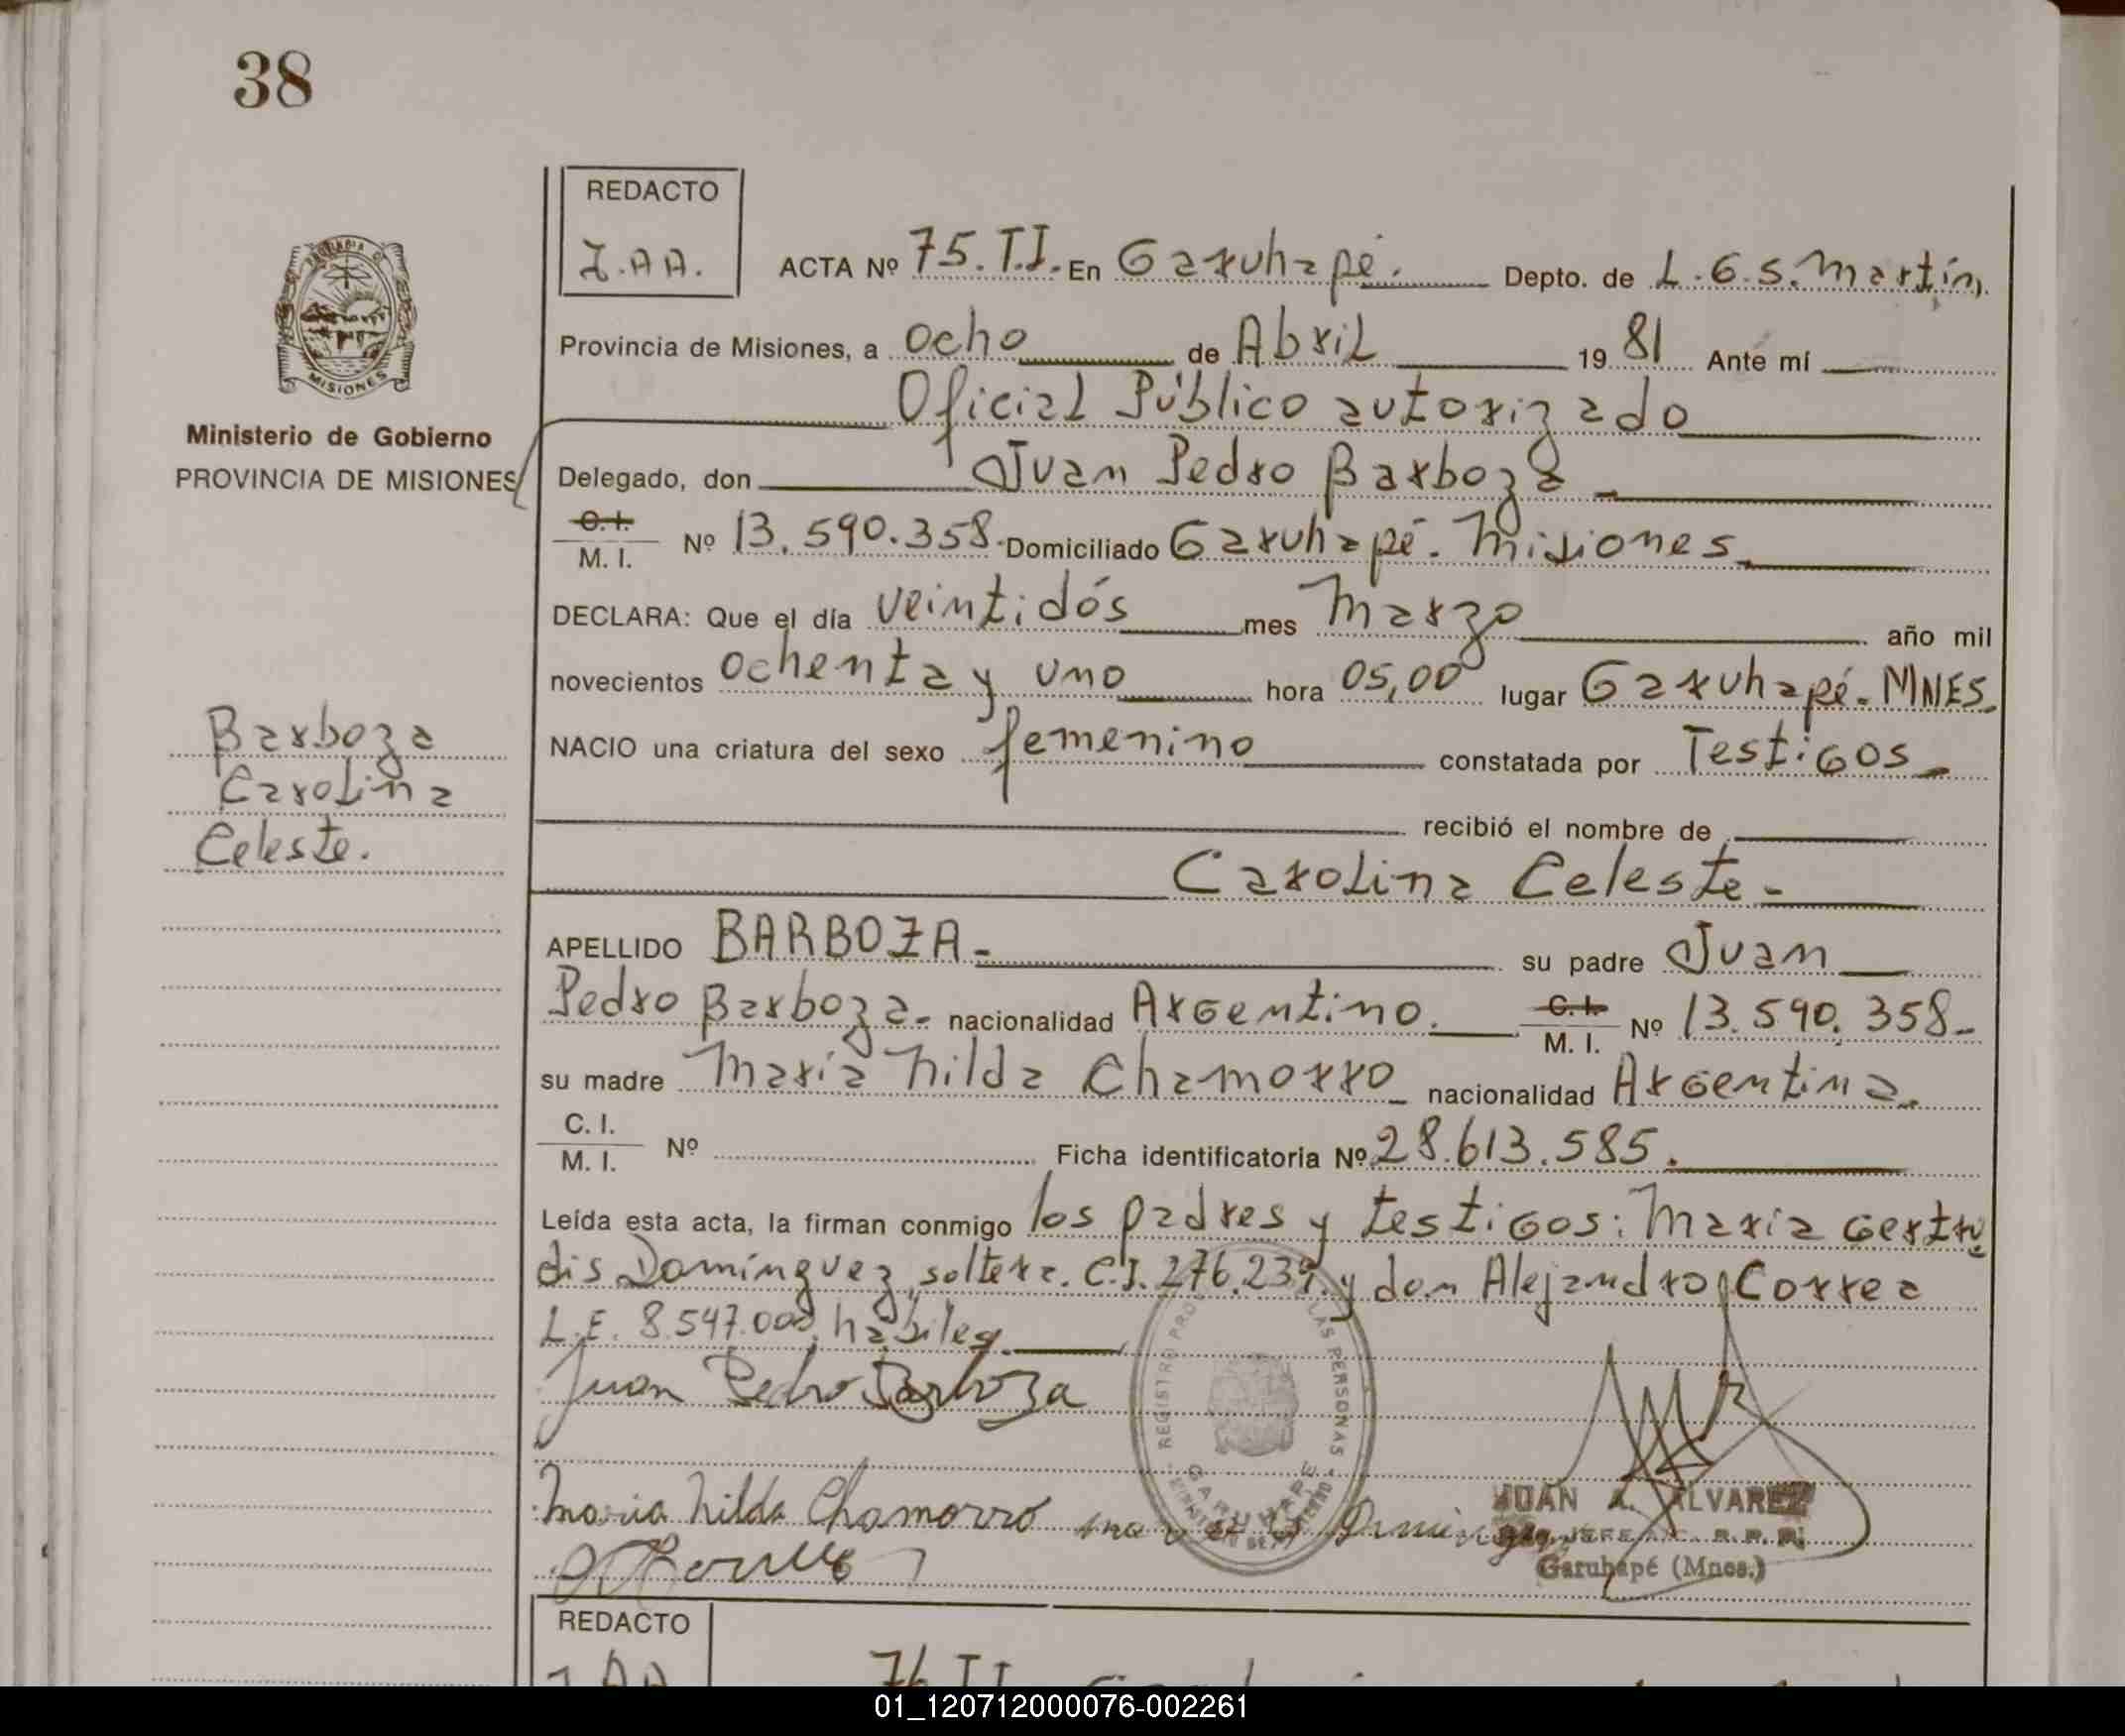 38
REDACTO
J.AA.
ACTA Nº 75.T.I. En Garuhapé. Depto. de L.G.S.Martín.
PROVINCIA DE MISIONES
Provincia de Misiones, a ocho de Abril 1981 Ante mí
Oficial Público autorizado
Ministerio de Gobierno
PROVINCIA DE MISIONES
Delegado, don Juan Pedro Barboza
C.I. M.I. Nº 13.590.358. Domiciliado Garuhapé. Misiones
DECLARA: Que el día veintidós mes Marzo año mil
novecientos ochenta y uno hora 05,00 lugar Garuhapé. MNES.
Barboza
Carolina
Celeste.
NACIO una criatura del sexo femenino constatada por Testigos
recibió el nombre de
Carolina Celeste
APELLIDO BARBOZA su padre Juan
Pedro Barboza nacionalidad Argentino. C.I. M.I. Nº 13.590.358
su madre María Nilda Chamorro nacionalidad Argentina.
C.I. M.I. Nº Ficha identificatoria Nº 28.613.585.
Leída esta acta, la firman conmigo los padres y testigos: María Gertru
dis Domínguez, soltera. C.I. 276.239. y don Alejandro Correa
L.E. 8.547.000. hábiles.
Juan Pedro Barboza
REGISTRO LAS PERSONAS
GARUHAPE
Maria Nilda Chamorro
JUAN A. ALVAREZ
JEFE R.P.P.
Garuhapé (Mnes.)
REDACTO
76 T.I.
01_120712000076-002261